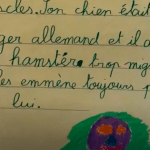 scles. Son chien était
ger allemand et il a
hamstére trop mig
les emmène toujours p
lui.